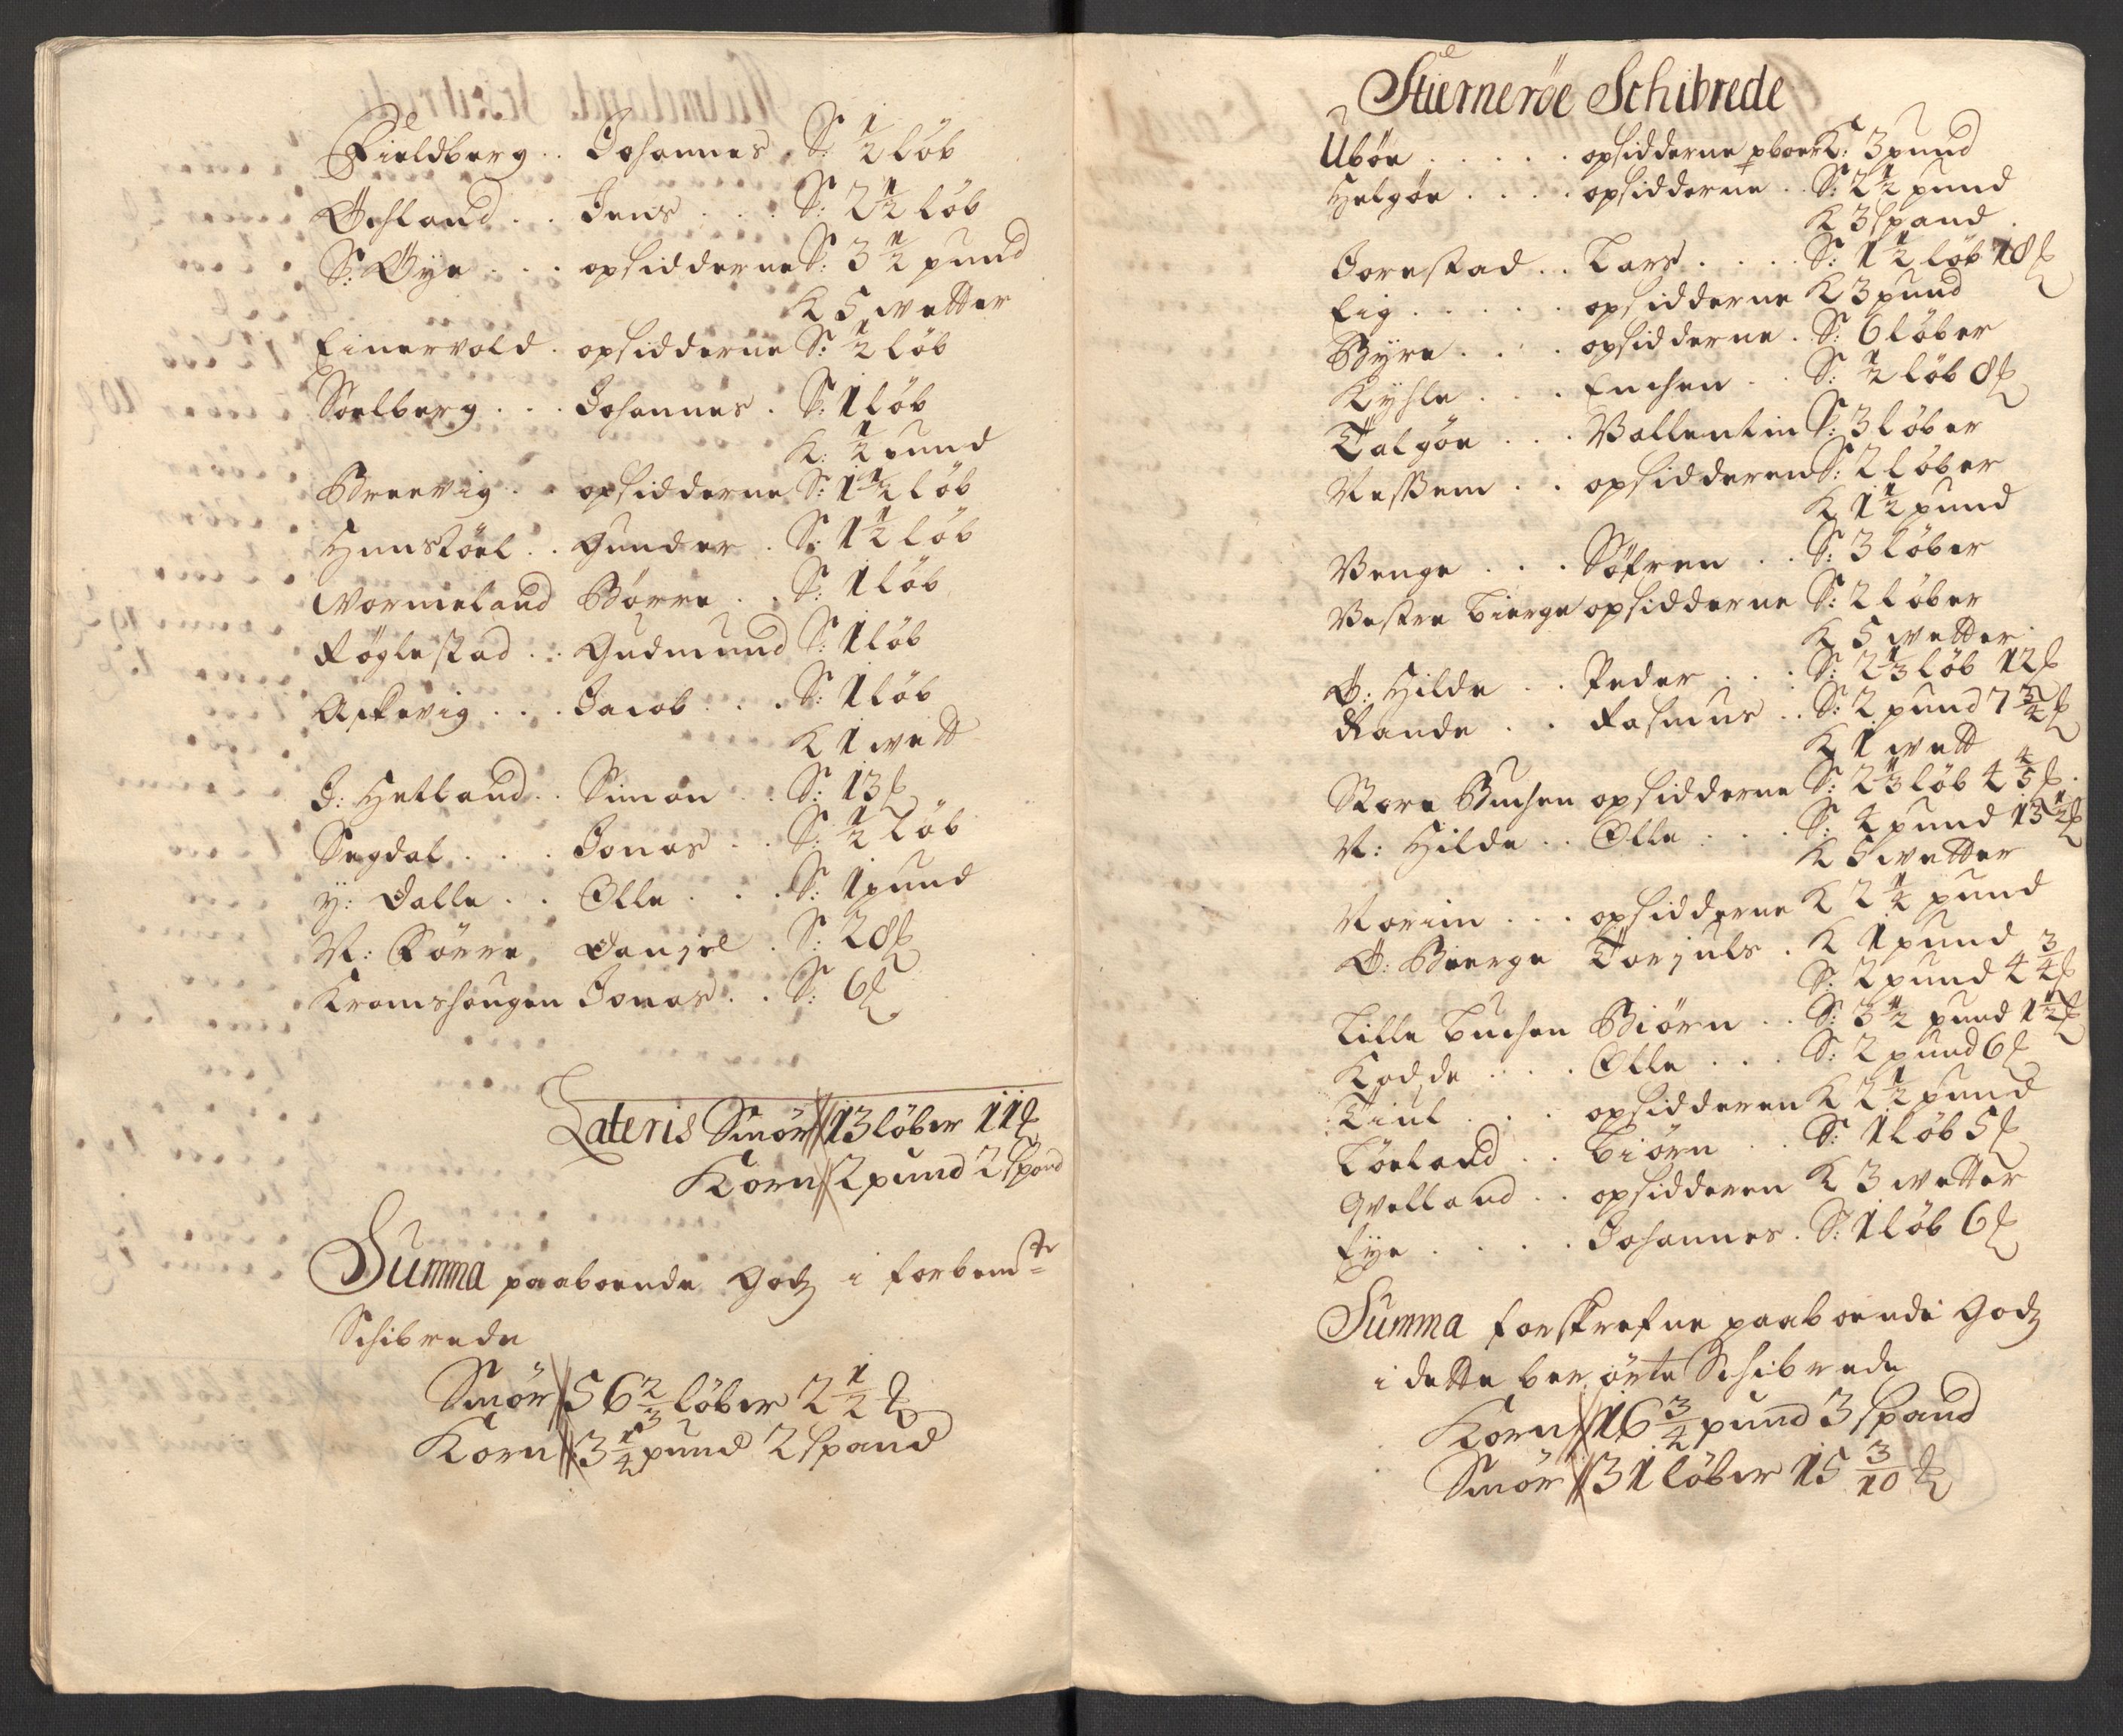 Fieldberg . . Johannes S: 1/2 löb
Östland . . Jens . . . S: 2 1/2 löb
S: Øye . . . opsidderne S: 3 1/2 pund
K 5 wetter
Einervold . opsidderne S: 1/2 löb
Soelberg . . . Johannes . S: 1 löb
K: 1/2 pund
Breevig . . opsidderne S: 1 1/2 löb
Hunstöel . . Gunder . S: 1 1/2 löb
Wormeland Börre . . S: 1 löb
Röglestad . . Gudmund S: 1 löb
Askevig . . . Jacob . . . S: 1 löb
K 1 wett
I: Hetland . . Simon . . S: 13 ℔
Segdal . . . Jonas . . S: 1/2 löb
Y: Dalle . . Olle . . . S: 1 pund
N: Förre Daniel . S: 28 ℔
Kramshougen Jonas . . S: 6 ℔
Lateris Smör 13 löber 11 ℔
Korn 2 pund 2 spand
Summa paaboende Godz i forbemte
Schibrede
Smör 56 2/3 löber 2 1/2 ℔
Korn 3 3/4 pund 2 spand
Stierneröe Schibrede
Uböe . . . . . opsidderne paboer K: 3 pund
Helgöe . . . . opsidderne . . S: 2 1/2 pund
K 3 spand
Jorestad . . Lars . . . . S: 1 1/2 löb 18 ℔
Eig . . . . . opsidderne K 3 pund
Byre . . . . opsidderne . S: 6 löber
Kyhle . . . Enchen . . S: 1/2 löb 8 ℔
Talgöe . . . Vallentin S: 3 löber
Nessem . . opsidderen S: 2 löber
K 1 1/2 pund
Venge . . . Söfren . . S: 3 löber
Vestre Bierge opsidderne S: 2 löber
K 5 wetter
Ö: Hilde . . Peder . . . S: 2 1/3 löb 12 ℔
Rande . . Rasmus . . S: 2 pund 7 3/4 ℔
K 1 wett
Store Buchen opsidderne S: 2 1/3 löb 4 4/5 ℔
N: Hilde . . Olle . . . S: 4 pund 13 1/2 ℔
K 5 wetter
Narim . . . opsidderne K 2 1/2 pund
Ö: Bierge Torjuls . K 1 pund
S: 2 pund 4 3/4 ℔
Lille Buchen Biörn . . S: 3 1/2 pund 1 1/2 ℔
Kodde . . . . Olle . . . S: 2 pund 6 ℔
Tiul . . . opsidderen K 2 1/2 pund
Löeland . . Biörn . . S: 1 löb 5 ℔
Qvelland . . opsidderen K 3 wetter
Eye . . . . . Johannes . S: 1 löb 6 ℔
Summa forskrefne paaboende Godz
i dette berörte Schibrede
Korn 16 3/4 pund 3 spand
Smör 31 löber 15 3/10 ℔